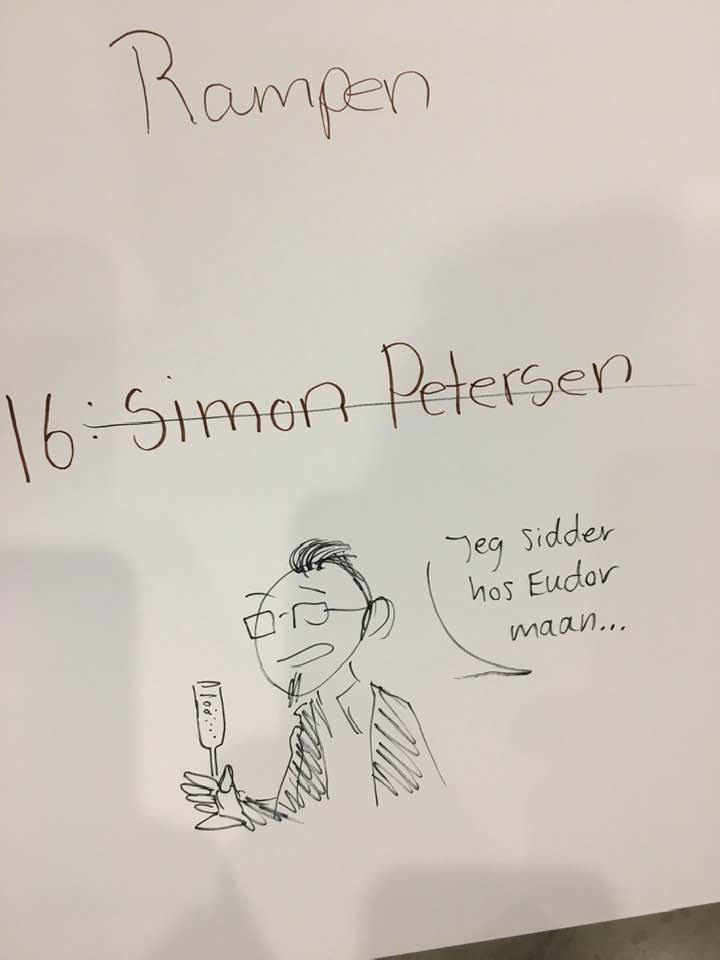 Rampen
16: Simon Petersen
Jeg sidder
hos Eudor
maan...